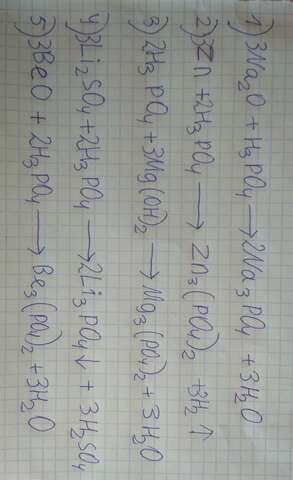 1) 3Na₂O + H₃PO₄ → 2Na₃PO₄ + 3H₂O
2) 3Zn + 2H₃PO₄ → Zn₃(PO₄)₂ + 3H₂↑
3) 2H₃PO₄ + 3Mg(OH)₂ → Mg₃(PO₄)₂ + 3H₂O
4) 3Li₂SO₄ + 2H₃PO₄ → 2Li₃PO₄↓ + 3H₂SO₄
5) 3BeO + 2H₃PO₄ → Be₃(PO₄)₂ + 3H₂O